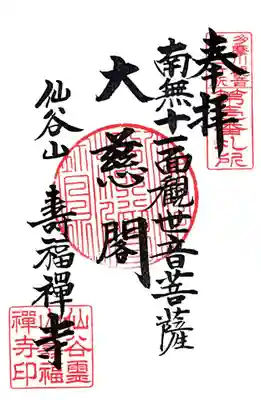 奉拝
南無十一面觀世音菩薩
大慈閣
仙谷山 壽福禪寺
仙谷靈
山壽福
禪寺印